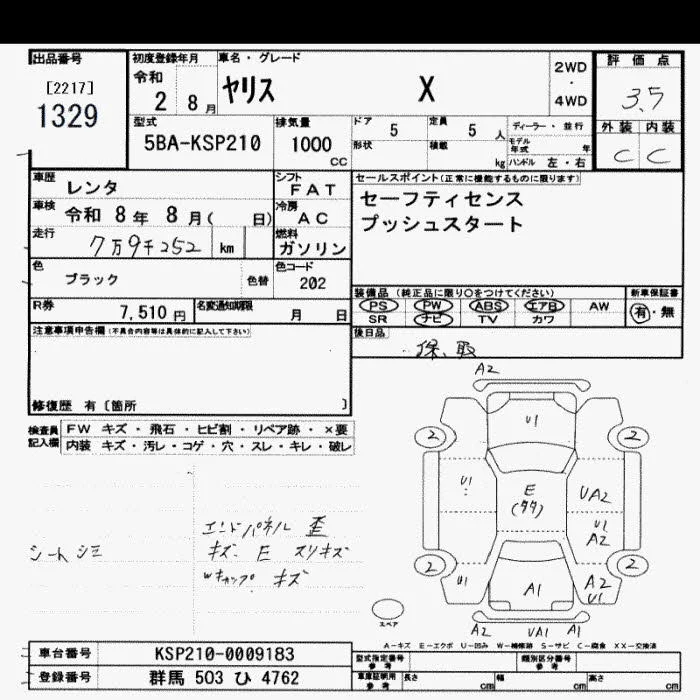 出品番号
[2217]
1329
初度登録年月
令和
2 8月
車名・グレード
ヤリス X
2WD
・
4WD
評価点
3.5
外装 内装
C C
型式
5BA-KSP210
排気量
1000
CC
ドア 5
定員 5 人
ディーラー・並行
形状
積載 kg
モデル年式 年
ハンドル 左・右
車歴
レンタ
シフト
FAT
車検 令和 8年 8月( 日)
冷房
AC
走行
7万9千252 km
燃料
ガソリン
セールスポイント(正常に機能するものに限ります)
セーフティセンス
プッシュスタート
色
ブラック
色替
色コード
202
R券
7,510 円
名変通知期限
月 日
装備品(純正品に限り○をつけてください)
新車保証書
PS PW ABS エアB AW
有・無
SR ナビ TV カワ
後日品
保、取
注意事項申告欄(不具合内容等は具体的に記入して下さい)
修復歴 有〔箇所 〕
検査員
記入欄
FW キズ・飛石・ヒビ割・リペア跡・×要
内装 キズ・汚レ・コゲ・穴・スレ・キレ・破レ
シートシミ
エンドパネル 歪
キズ E スリキズ
Wキャップ キズ
A2
U1
2
2
U1
E
(タタ)
UA2
U1
A2
2
2
U1
A1
A2
U1
スペア
A2 UA1 A1
A－キズ E－エクボ U－凹み W－補修跡 S－サビ C－腐食 XX－交換済
車台番号
KSP210-0009183
登録番号
群馬 503 ひ 4762
型式指定番号
参考
類別区分番号
参考
車庫証明用
参考
長さ cm
幅 cm
高さ cm